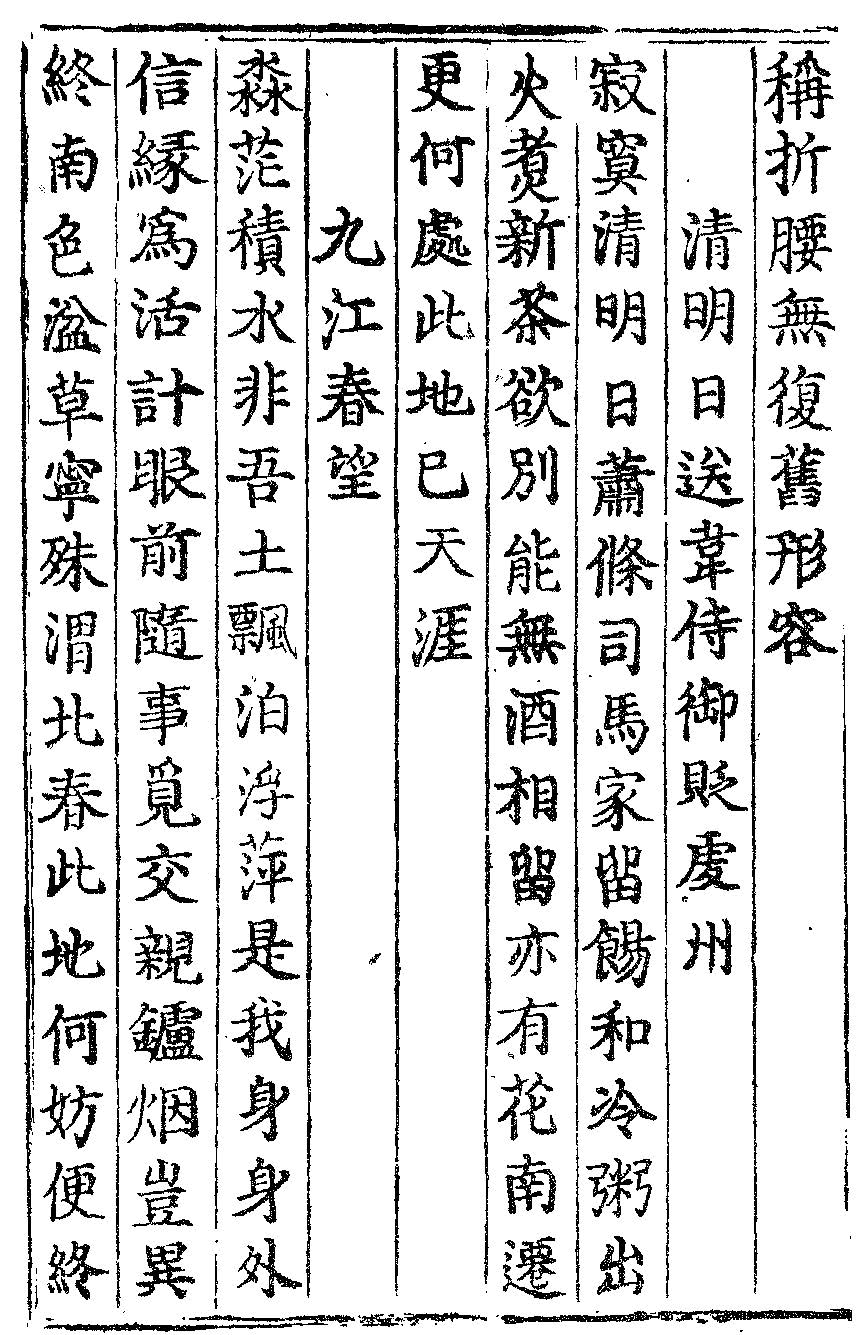 稱折腰無復舊形容
清明日送韋侍御貶虔州
寂寞清明日蕭條司馬家留餳和冷粥出
火煑新茶欲別能無酒相留亦有花南遷
更何處此地已天涯
九江春望
淼茫積水非吾土飄泊浮萍是我身身外
信緣爲活計眼前隨事覓交親鑪烟豈異
終南色湓草寧殊渭北春此地何妨便終